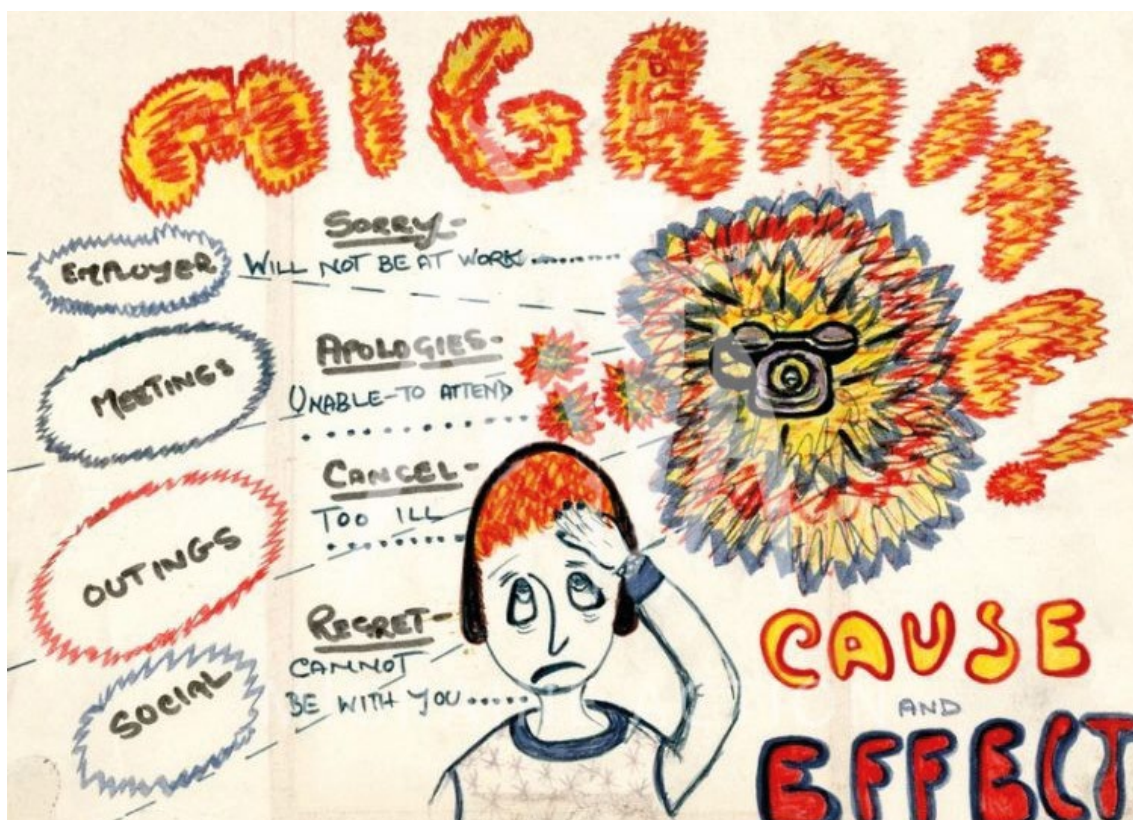 MiGRAiNE!
EMPLOYER
SORRY-
WILL NOT BE AT WORK..........
MEETINGS
APOLOGIES-
UNABLE-TO ATTEND
..............
OUTINGS
CANCEL-
TOO ILL
............
SOCIAL
REGRET-
CANNOT
BE WITH YOU......
CAUSE
AND
EFFECT